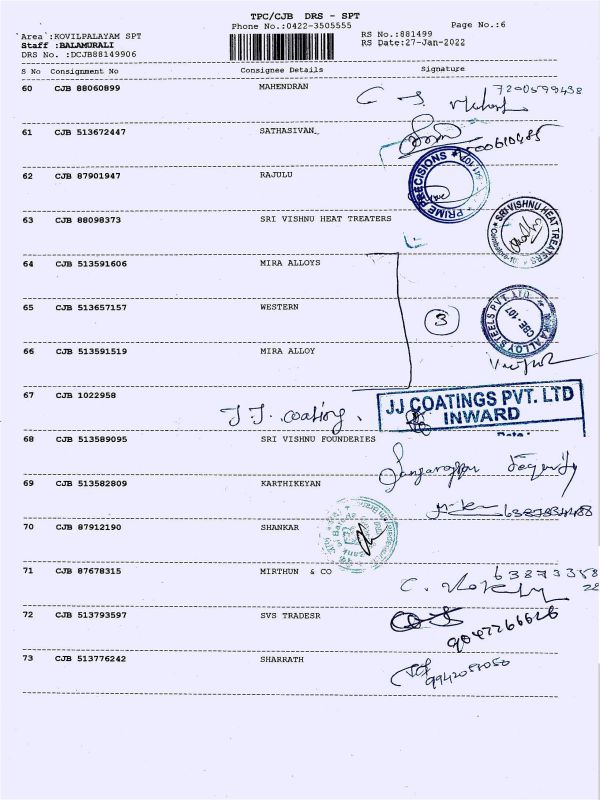 TPC/CJB DRS - SPT
Phone No.:0422-3505555
Page No.:6
Area :KOVILPALAYAM SPT
RS No.:881499
Staff :BALAMURALI
RS Date:27-Jan-2022
DRS No. :DCJB88149906
S No Consignment No Consignee Details Signature
60 CJB 88060899 MAHENDRAN
7200599438
61 CJB 513672447 SATHASIVAN
62 CJB 87901947 RAJULU
PRIME PRECISIONS
63 CJB 88098373 SRI VISHNU HEAT TREATERS
SRI VISHNU HEAT TREATERS
64 CJB 513591606 MIRA ALLOYS
65 CJB 513657157 WESTERN
3
ALLOY STEELS PVT. LTD
CBE-107
66 CJB 513591519 MIRA ALLOY
67 CJB 1022958
J J. coating.
JJ COATINGS PVT. LTD
INWARD
68 CJB 513589095 SRI VISHNU FOUNDERIES
69 CJB 513582809 KARTHIKEYAN
70 CJB 87912190 SHANKAR
71 CJB 87678315 MIRTHUN & CO
72 CJB 513793597 SVS TRADESR
9047266626
73 CJB 513776242 SHARRATH